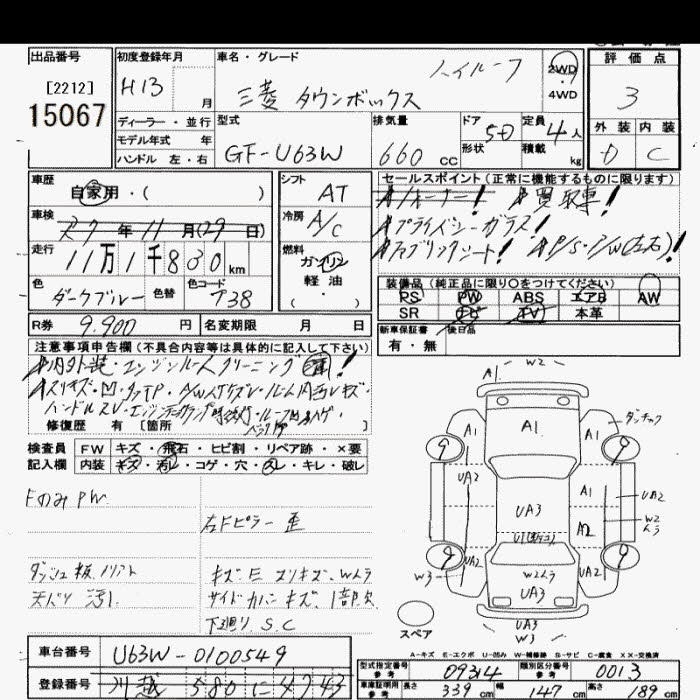 出品番号
[2212]
15067
初度登録年月
H13 月
車名・グレード
ハイルーフ
三菱 タウンボックス
2WD
4WD
評価点
3
外装 内装
D C
ディーラー・並行
モデル年式 年
ハンドル 左・右
型式
GF-U63W
排気量
660 CC
ドア 5D
形状
定員 4人
積載 kg
車歴
自家用・( )
車検
年11月(29日)
走行
11万1千830km
色
ダークブルー
色替
色コード
T38
シフト
AT
冷房
A/C
燃料
ガソリン
軽油
( ・ )
セールスポイント(正常に機能するものに限ります)
買取車!
プライバシーガラス!
ファブリックシート! P/S・P/W(左右)!
装備品(純正品に限り○をつけてください)
PS PW ABS エアB AW
SR ナビ TV 本革
R券 9.900円
名変期限 月 日
新車保証書
有・無
後日品
注意事項申告欄(不具合内容等は具体的に記入して下さい)
内外装・エンジンルームクリーニング済!
スリキズ・凹・
ハンドルスレ・エンジンチェックランプ
修復歴 有 [箇所 ]
検査員
記入欄
FW キズ・飛石・ヒビ割・リペア跡・×要
内装 キズ・汚レ・コゲ・穴・スレ・キレ・破レ
FのみPW
右Fピラー歪
ダッシュ板ノリアト
天バリ汚レ
キズE スリキズ、Wムラ
サイドカバーキズ、1部欠
下廻り S.C
A1 W2
A1
A1
A1
ダッチャク
9
9
UA2
A1
UA2
UA3
W2ムラ
A2
U1
9
9
W3
UA2
W2ムラ
UA2
UA3
UA3
W3
スペア
A-キズ E-エクボ U-凹み W-補修跡 S-サビ C-腐食 XX-交換済
車台番号
U63W-0100549
登録番号
川越 580 に 4743
型式指定番号
参考
09314
類別区分番号
参考
0013
車庫証明用
参考
長さ 339 cm
幅 147 cm
高さ 189 cm